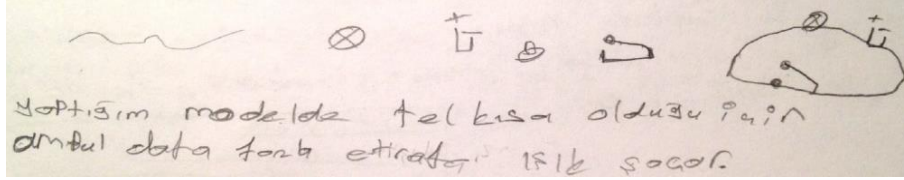 yaptığım modelde tel kısa olduğu için
ampul daha fazla etirafa ışık saçar.